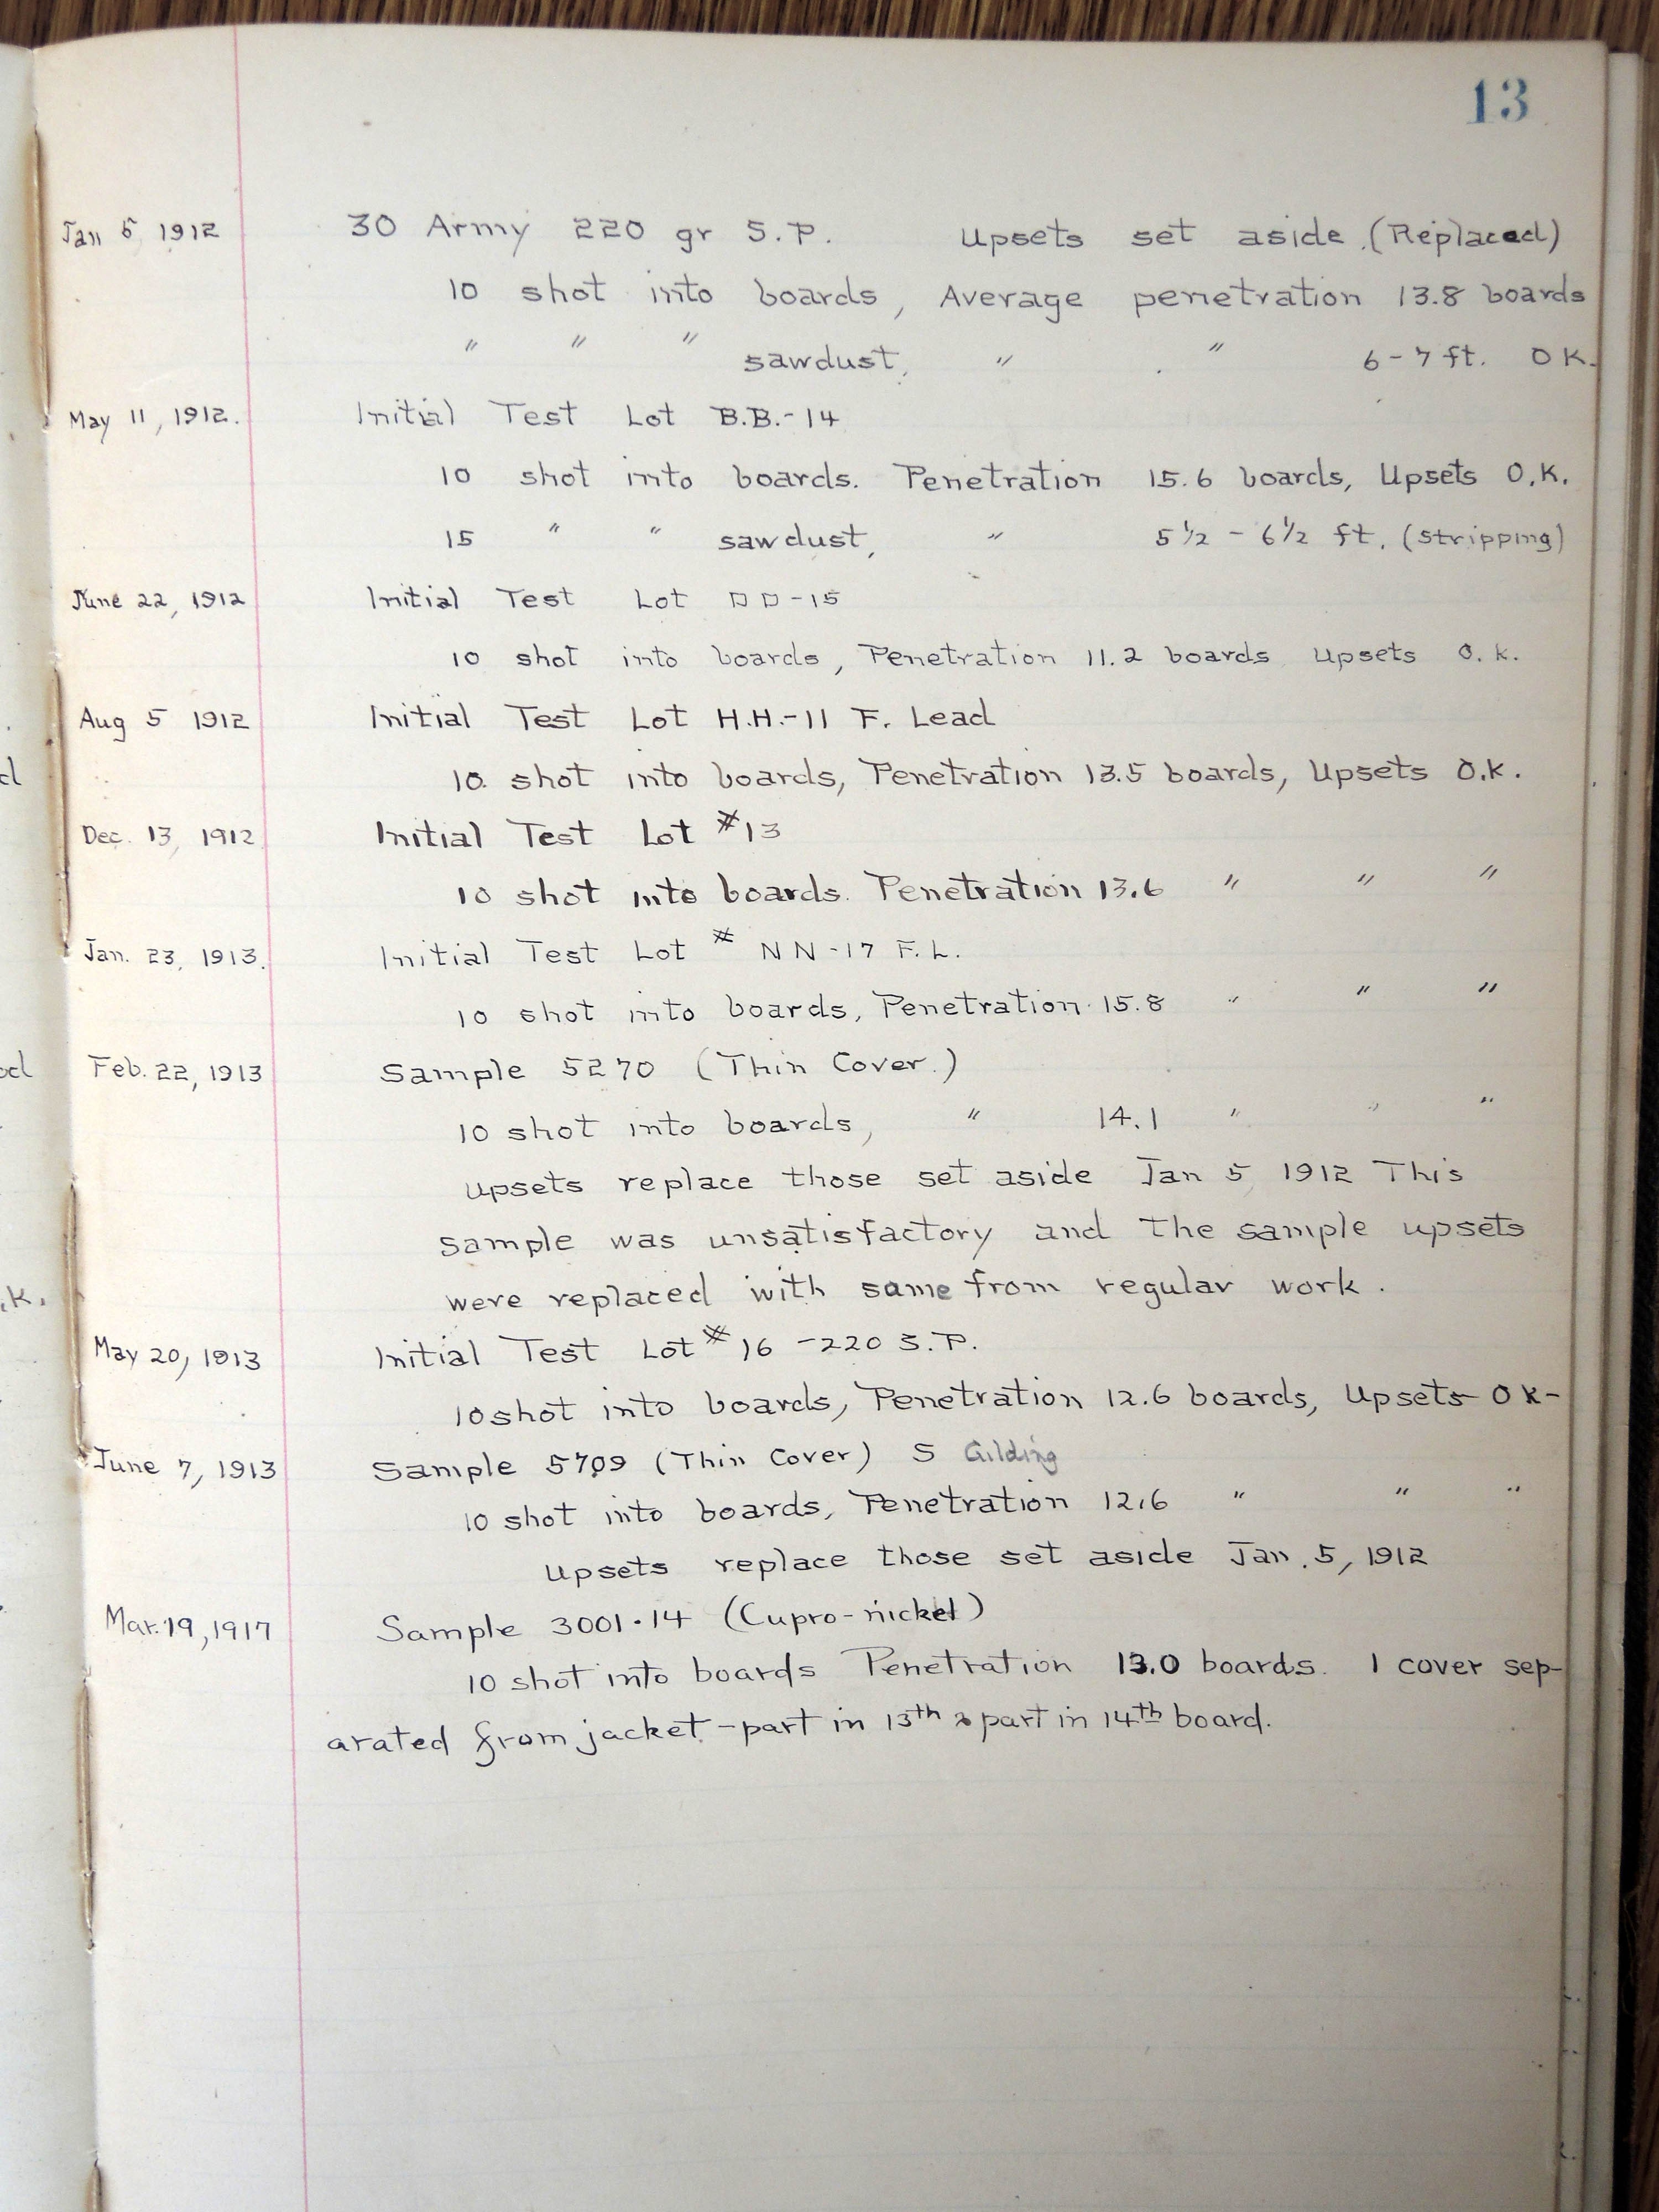 13
Jan 5, 1912 30 Army 220 gr S.P. Upsets set aside. (Replaced)
10 shot into boards, Average penetration 13.8 boards
" " " sawdust, " " 6-7 ft. OK.
May 11, 1912. Initial Test Lot B.B.-14
10 shot into boards. Penetration 15.6 boards, Upsets O.K.
15 " " sawdust, " 5 1/2 - 6 1/2 ft. (stripping)
June 22, 1912 Initial Test Lot DD-15
10 shot into boards, Penetration 11.2 boards Upsets O.K.
Aug 5 1912 Initial Test Lot H.H.-11 F. Lead
10. shot into boards, Penetration 13.5 boards, Upsets O.K.
Dec. 13, 1912 Initial Test Lot #13
10 shot into boards. Penetration 13.6 " " "
Jan. 23, 1913. Initial Test Lot # NN-17 F.L.
10 shot into boards, Penetration 15.8 " " "
Feb. 22, 1913 Sample 5270 (Thin Cover.)
10 shot into boards, " 14.1 " " "
upsets replace those set aside Jan 5, 1912 This
sample was unsatisfactory and the sample upsets
were replaced with same from regular work.
May 20, 1913 Initial Test Lot #16 -220 S.P.
10 shot into boards, Penetration 12.6 boards, Upsets OK-
June 7, 1913 Sample 5709 (Thin Cover) S Gilding
10 shot into boards, Penetration 12.6 " " "
Upsets replace those set aside Jan. 5, 1912
Mar. 19, 1917 Sample 3001-14 (Cupro-nickel)
10 shot into boards Penetration 13.0 boards. 1 cover sep-
arated from jacket - part in 13th & part in 14th board.